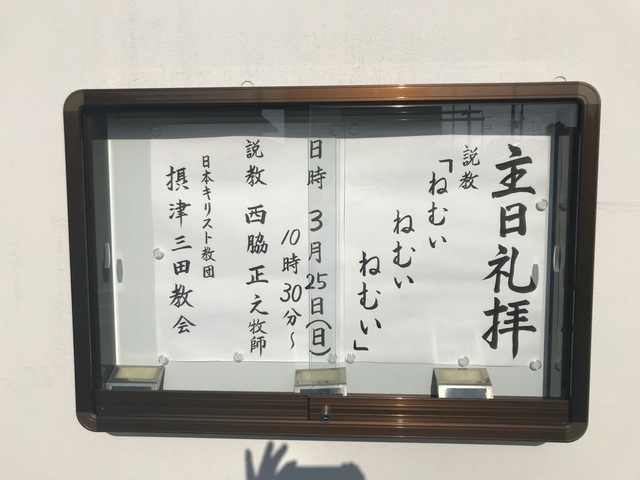 主日礼拝
説教
「ねむい
ねむい
ねむい」
日時 3月25日(日)
10時30分~
説教 西脇正之牧師
日本キリスト教団
摂津三田教会